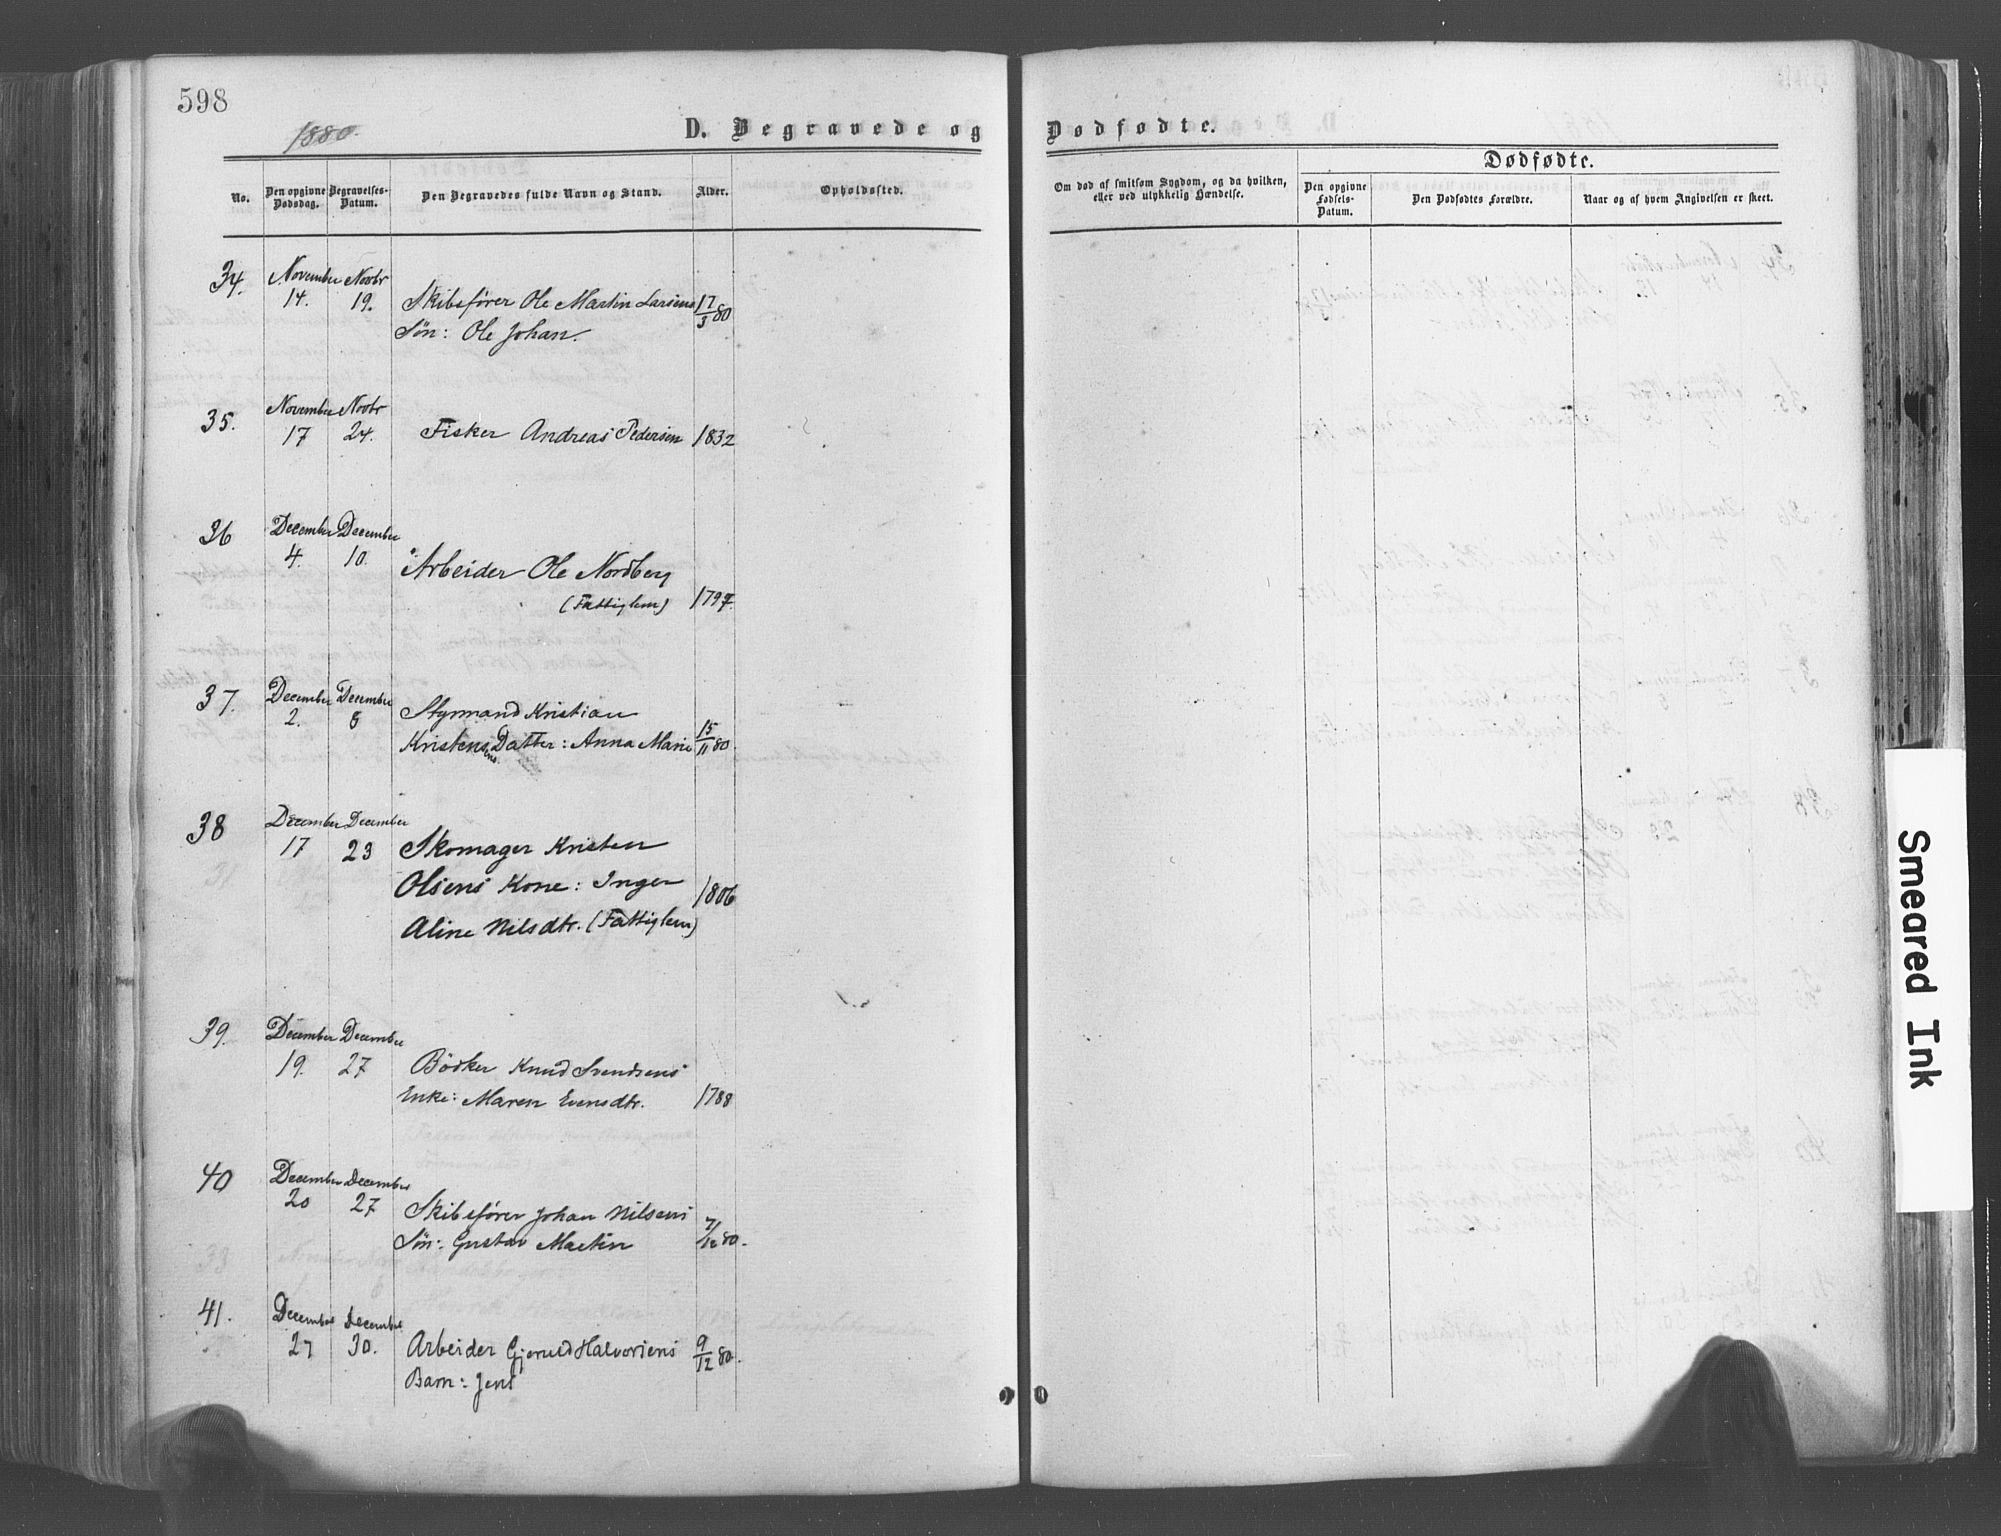 598
1880.
D. Begravede og Dødfødte.
Dødfødte.
No. Den opgivne Dødsdag. Begravelses-Datum. Den Begravedes fulde Navn og Stand. Alder. Opholdssted. Om død af smitsom Sygdom, og da hvilken, eller ved ulykkelig Hændelse. Den opgivne Fødsels-Datum. Den Dødfødtes Forældre. Naar og af hvem Angivelsen er skeet.
34. November 14. Novbr 19. Skibsfører Ole Martin Larsens 17/3 80
Søn: Ole Johan.
35. November 17 Novbr 24. Fisker Andreas Pedersen 1832
36 December 4. December 10. Arbeider Ole Nordberg
(Fattiglem) 1797.
37. December 2. December 8 Styrmand Kristian
Kristensens Datter: Anna Marie 15/11 80.
38 December 17 December 23 Skomager Kristen
Olsens Kone: Inger 1806
Aline Nilsdtr. (Fattiglem)
39. December 19. December 27 Bødker Knud Svendsens
Enke: Maren Evensdtr. 1788
40 December 20 December 27 Skibsfører Johan Nilsens
Søn: Gustav Martin 7/12 80.
41. December 27 December 30. Arbeider Gjeruld Halvorsens 9/12 80.
Barn: Jens
Smeared Ink